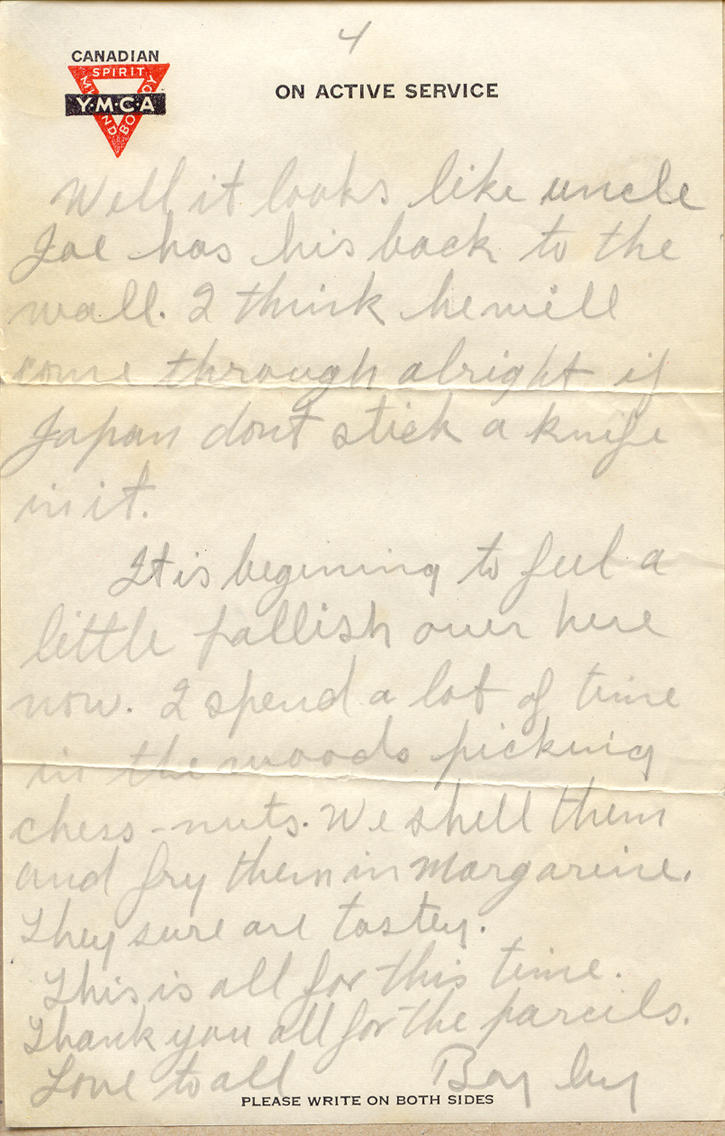 4
CANADIAN
SPIRIT
Y·M·C·A
MIND
BODY
ON ACTIVE SERVICE
Well it looks like uncle
Joe has his back to the
wall. I think he will
come through alright if
Japan dont stick a knife
in it.
It is begining to feel a
little fallish over here
now. I spend a lot of time
in the woods picking
chess-nuts. We shell them
and fry them in Margarine.
They sure are tastey.
This is all for this time.
Thank you all for the parcels.
Love to all
PLEASE WRITE ON BOTH SIDES